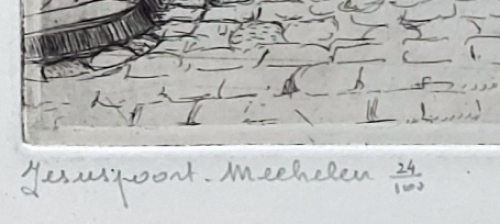 Jesuspoort - Mechelen 24/100